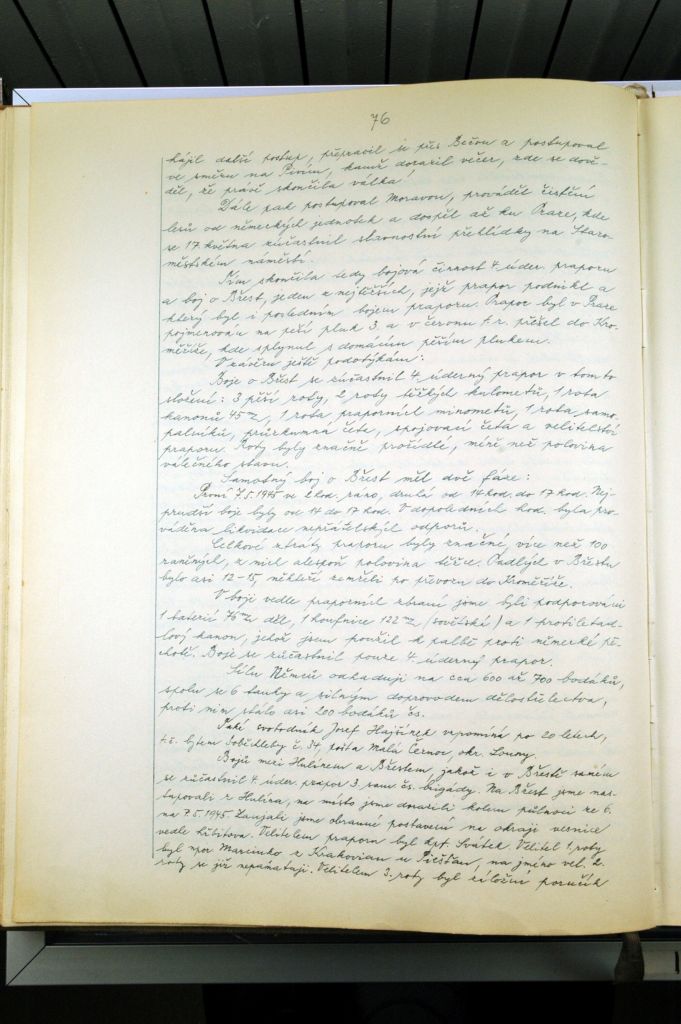 76
hájil další postup, přepravil se přes Bečvu a postupoval
ve směru na Pivín, kamž dorazil večer, zde se dově-
děl, že právě skončila válka!
Dále pak postupoval Moravou, prováděl čistění
lesů od německých jednotek a dospěl až ku Praze, kde
se 17. května zúčastnil slavnostní přehlídky na Staro-
městském náměstí.
Tím skončila tedy bojová činnost 4. úder. praporu
a boj o Břest, jeden z nejtěžších, jejž prapor podnikl a
který byl i posledním bojem praporu. Prapor byl v Praze
pojmenován na pěší pluk 3. a v červnu t. r. přišel do Kro-
měříže, kde splynul s domácím pěším plukem.
V závěru ještě podotýkám:
Boje o Břest se zúčastnil 4. úderný prapor v tomto
složení: 3 pěší roty, 2 roty těžkých kulometů, 1 rota
kanonů 45 m/m, 1 rota praporních minometů, 1 rota samo-
palníků, průzkumná četa, spojovací četa a velitelství
praporu. Roty byly značně prořídlé, méně než polovina
válečného stavu.
Samotný boj o Břest měl dvě fáze:
První 7.5.1945 ve 2 hod. ráno, druhá od 14 hod. do 17 hod. Nej-
prudší boje byly od 14 do 17 hod. V dopoledních hod. byla pro-
váděna likvidace nepřátelských odporů.
Celkové ztráty praporu byly značné, více než 100
raněných, z nich alespoň polovina těžce. Padlých v Břestu
bylo asi 12-15, někteří zemřeli po převozu do Kroměříže.
V boji vedle praporních zbraní jsme byli podporováni
1 baterií 76 m/m děl, 1 houfnice 122 m/m (sovětské) a 1 protiletad-
lový kanon, jehož jsem použil k palbě proti německé pě-
chotě. Boje se zúčastnil pouze 4. úderný prapor.
Sílu Němců odhaduji na cca 600 až 700 bodáků,
spolu se 6 tanky a silným doprovodem dělostřelectva,
proti nim stálo asi 200 bodáků čs.
Také svobodník Josef Hajšínek vzpomíná po 20 letech,
t.č. bytem Soběchleby č. 34, pošta Malá Černoc, okr. Louny.
Bojů mezi Hulínem a Břestem, jakož i v Břestě samém
se zúčastnil 4. úder. prapor 3. sam. čs. brigády. Na Břest jsme nas-
tupovali z Hulína, na místo jsme dorazili kolem půlnoci ze 6.
na 7.5.1945. Zaujali jsme obranné postavení na okraji vesnice
vedle hřbitova. Velitelem praporu byl kpt. Svátek. Velitel 1. roty
byl npor. Marcinko z Krakovian u Piešťan, na jméno vel. 2.
roty se již nepamatuji. Velitelem 3. roty byl záložní poručík